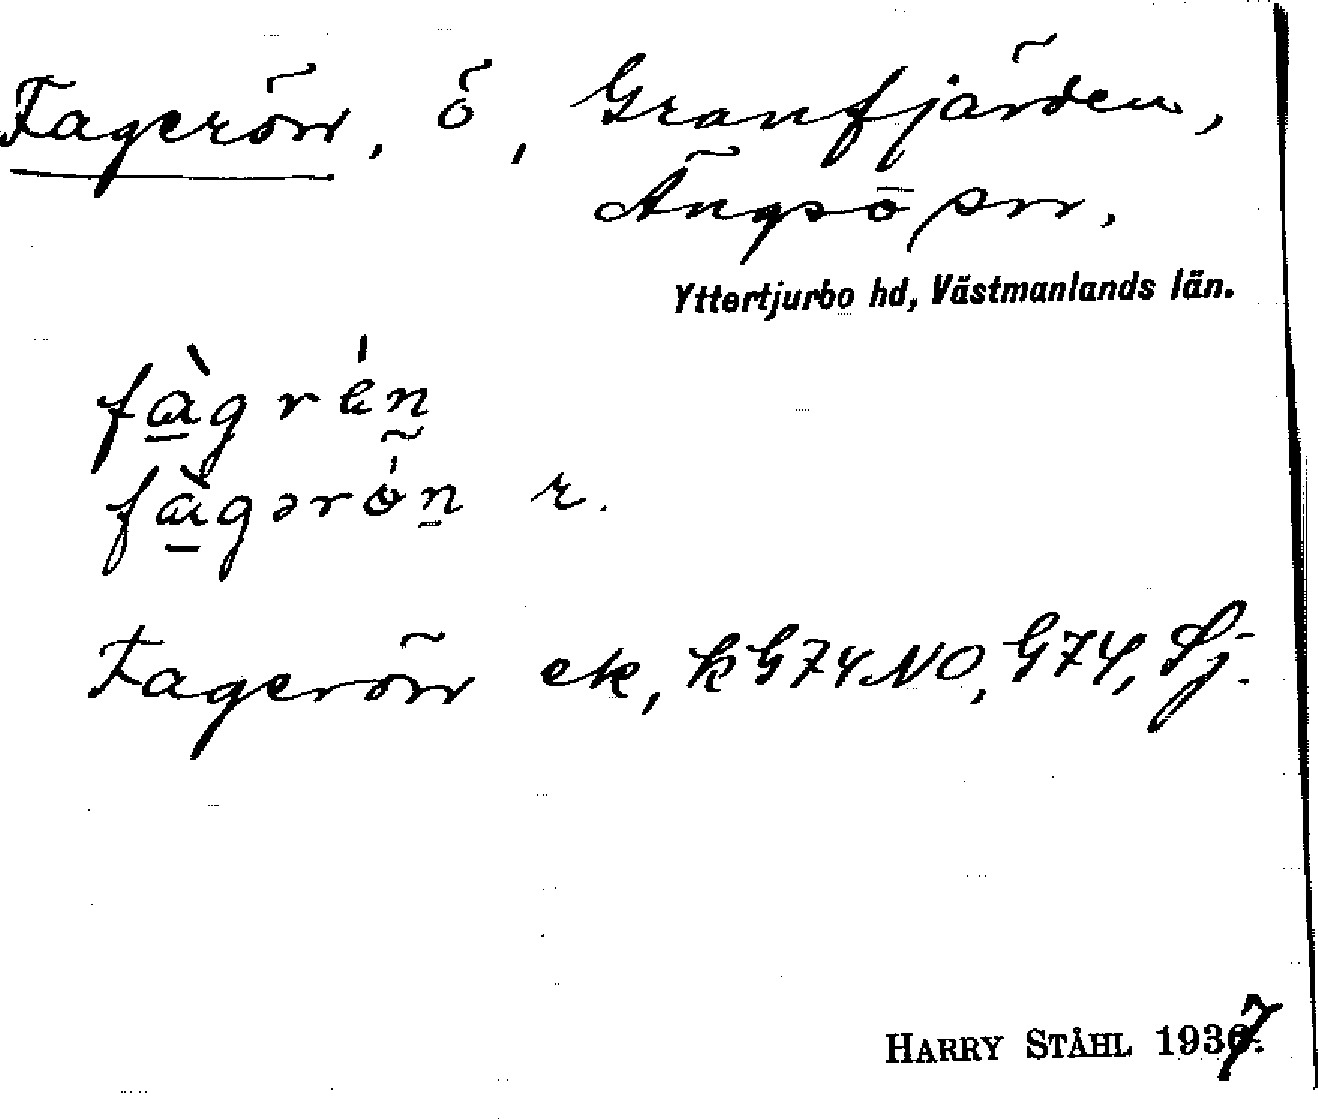 Fagerön, ö, Granfjärden,
Ängsö sn,
Yttertjurbo hd, Västmanlands län.
fàgrén
fàgərön r.
Fagerön ek, k G74NO, G74, Sj.
HARRY STÅHL 1937.